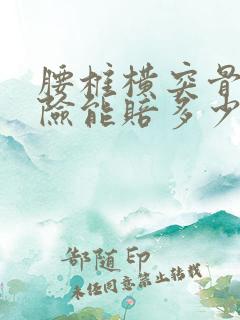 腰椎横突骨
险能赔多少
部随印
未经同意禁止转载